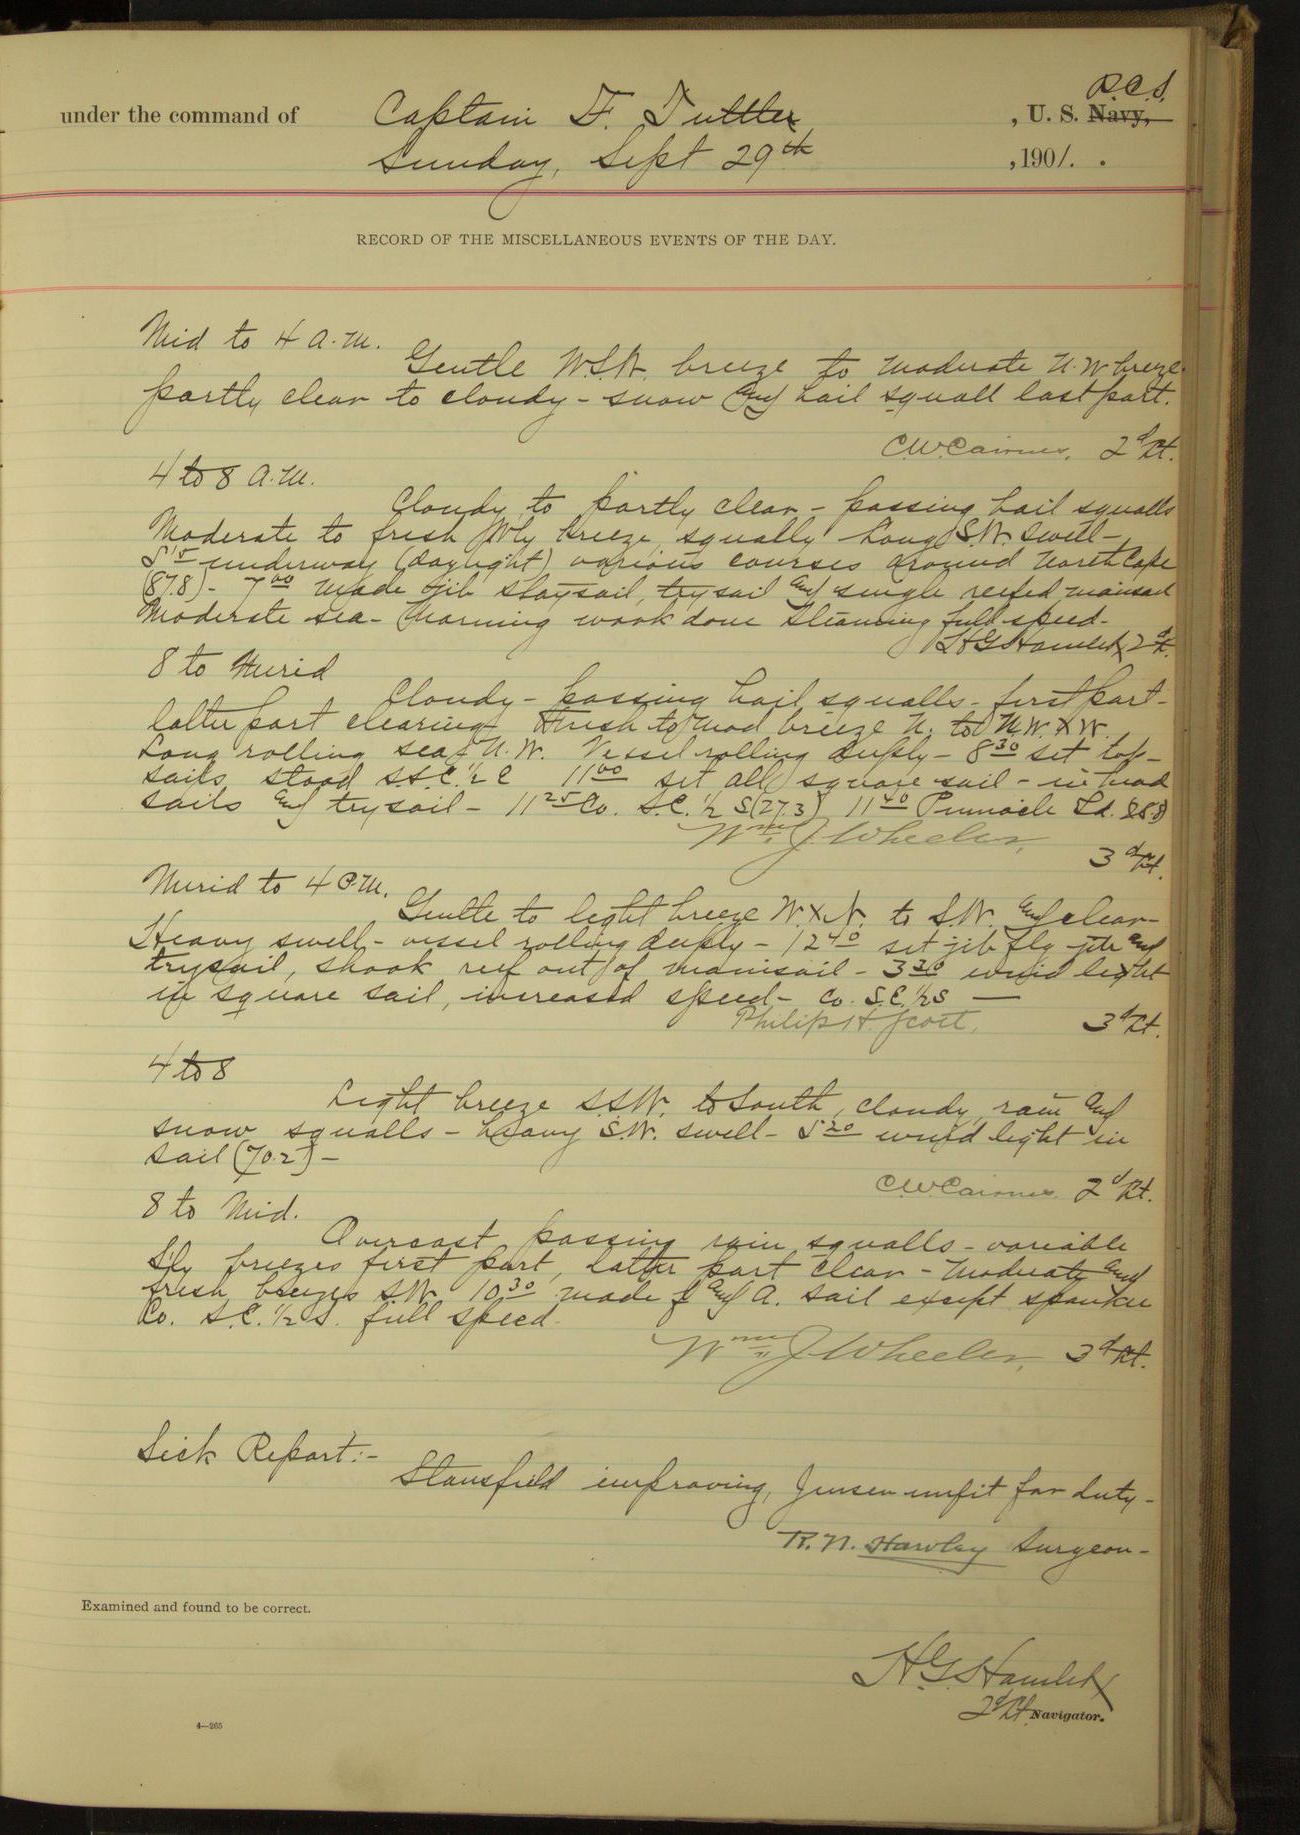 under the command of Captain F. Tuttle, U. S. Navy, R.C.S.
Sunday, Sept 29th, 1901.
RECORD OF THE MISCELLANEOUS EVENTS OF THE DAY.
Mid to 4 A.M.
Gentle W.S.W. breeze to moderate N.W breeze
partly clear to cloudy - snow and hail squall last part.
C.W. Cairnes. 2d Lt.
4 to 8 A.M.
Cloudy to partly clear - passing hail squalls
Moderate to fresh breeze, squally Long S.W. swell -
5 15 underway (daylight) various courses around North Cape
(87.8) - 7 00 made jib staysail, trysail and single reefed mainsail
Moderate sea - Morning work done steaming full speed -
H G Hamlet 2d Lt.
8 to Merid
Cloudy - passing hail squalls - first part -
latter part clearing Fresh to mod breeze N. to N.W. x W.
Long rolling sea N.W. Vessel rolling deeply - 8 30 set top-
sails stood S.S.E. 1/2 E 11 00 set all square sail - in head
sails and trysail - 11 25 Co. S.E. 1/2 S (27.3) 11 40 Pinnacle Id.
Wm J. Wheeler, 3d Lt.
Merid to 4 P.M.
Gentle to light breeze W. x N. to S.W. and clear -
Heavy swell, - vessel rolling deeply - 12 40 set jib fly jib and
trysail, shook reef out of mainsail - 3 30 wind light
in square sail, increased speed - Co. S.E. 1/2 S -
Philip H. Scott, 3d Lt.
4 to 8
Light breeze S.S.W. to South, cloudy, rain and
snow squalls - heavy S.W. swell - 5 20 wind light in
sail (70.2) -
C.W. Cairnes. 2d Lt.
8 to Mid.
Overcast passing rain squalls - variable
S'ly breezes first part, latter part clear - Moderate and
fresh breezes S.W. 10 30 made f and a. sail except spanker
Co. S.E. 1/2 S. full speed.
Wm J. Wheeler, 3d Lt.
Sick Report:-
Stansfield improving, Jensen unfit for duty -
R.N. Hawley Surgeon -
Examined and found to be correct.
H.G. Hamlet
2d Lt. Navigator.
4—265